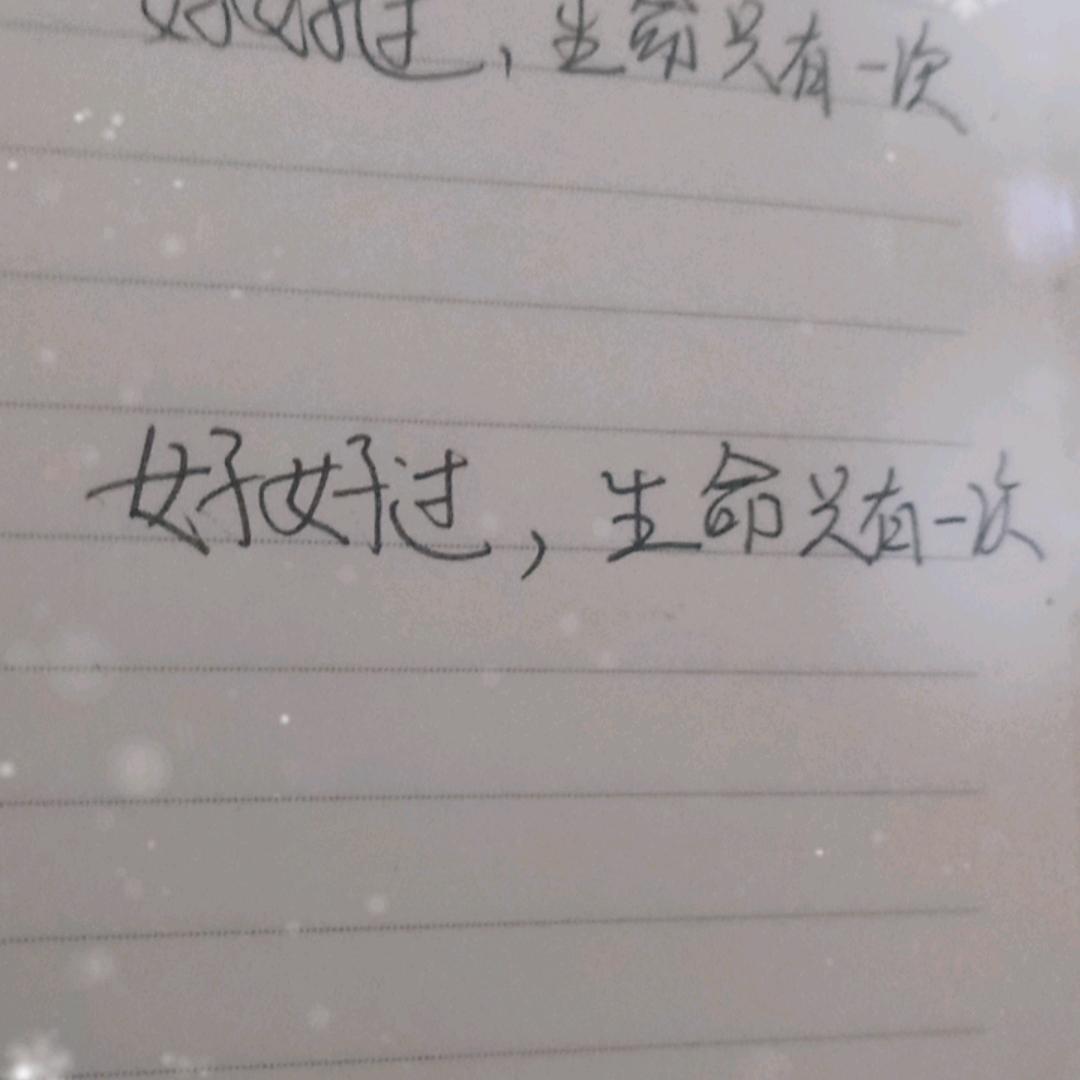 好好过，生命只有一次
好好过，生命只有一次